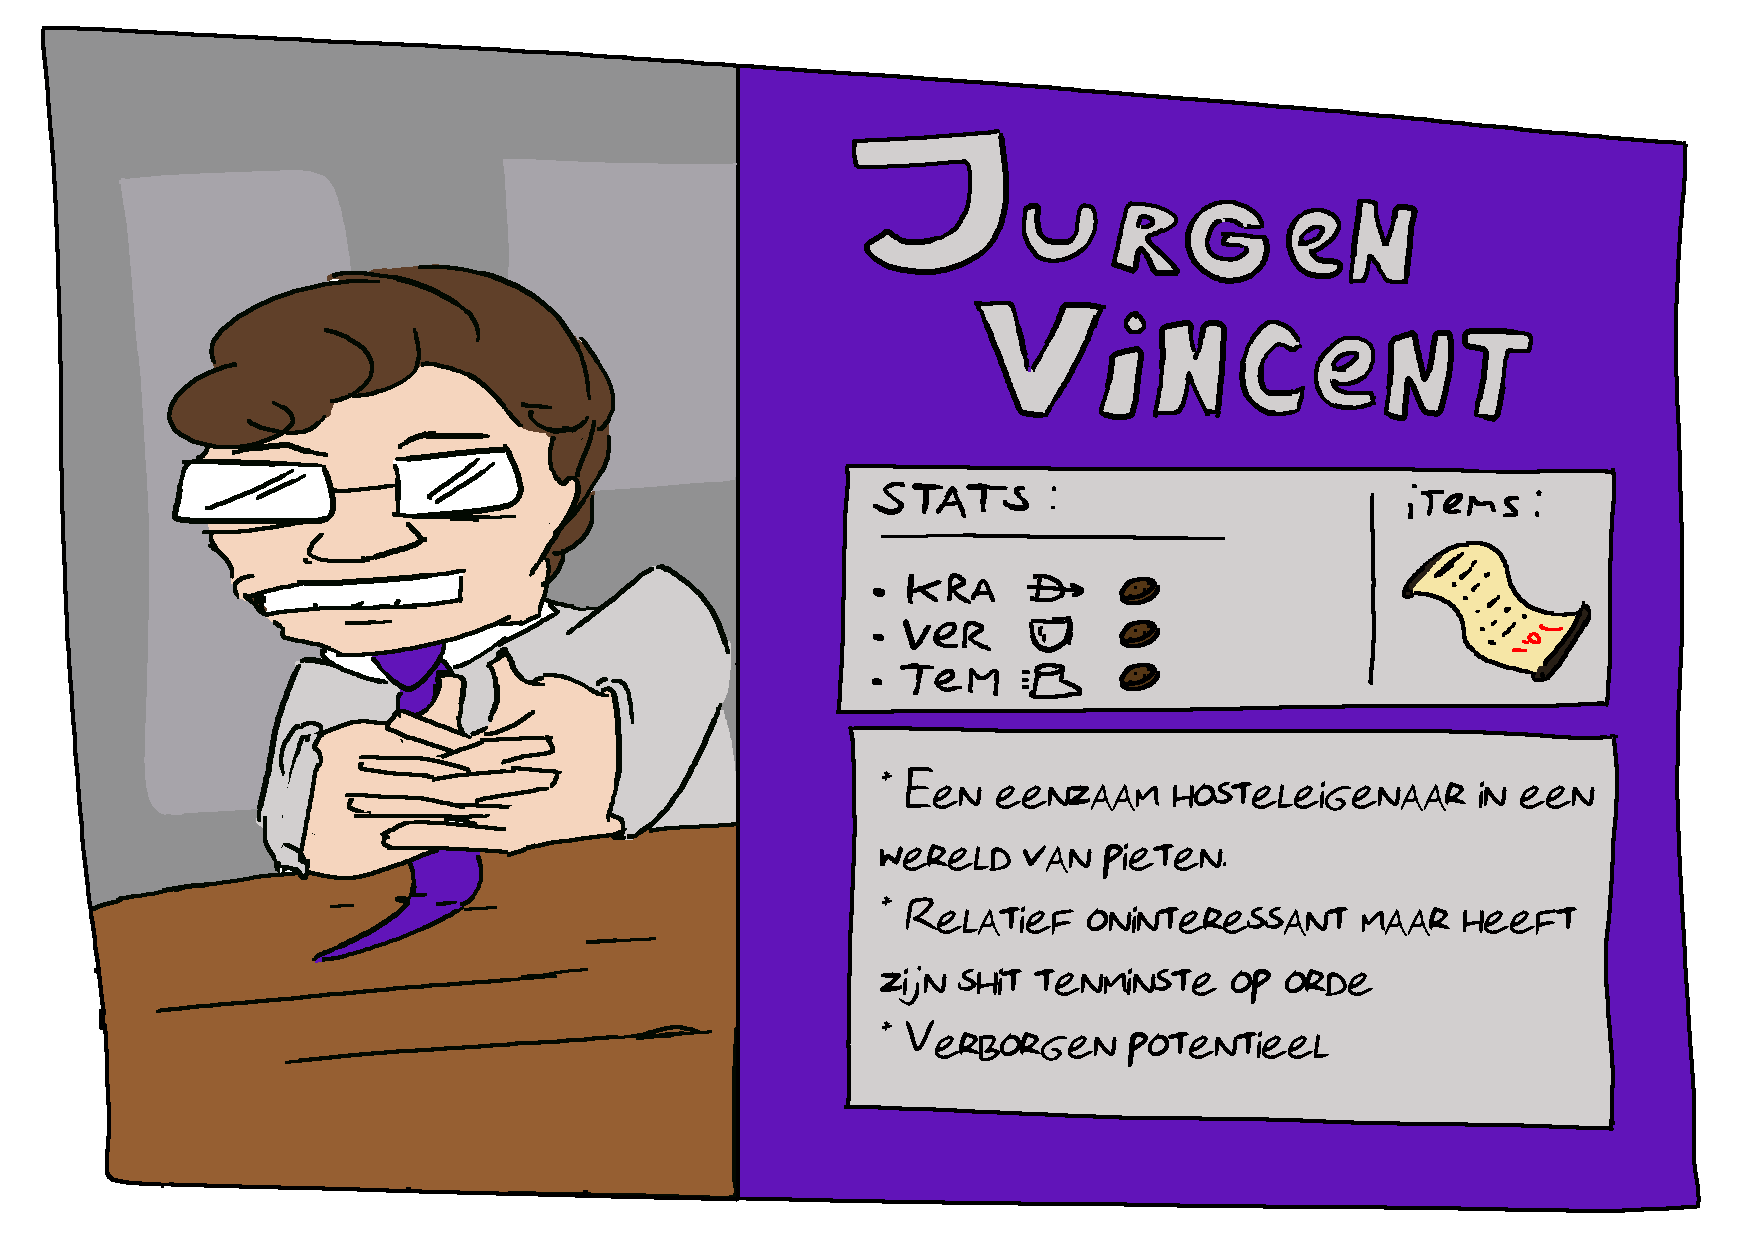 JURGEN
VINCENT
STATS :
items :
• KRA
• VER
• TEM
* Een eenzaam hosteleigenaar in een
wereld van pieten.
* Relatief oninteressant maar heeft
zijn shit tenminste op orde
* Verborgen potentieel